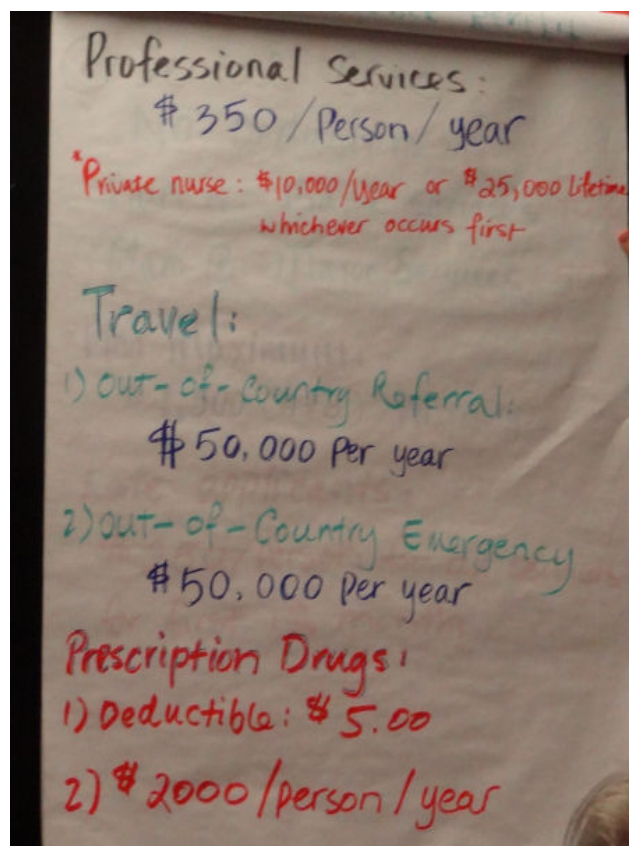 Professional Services:
$350/Person/year
*Private nurse: $10,000/year or $25,000 lifetime
whichever occurs first
Travel:
1) Out-of-Country Referral:
$50,000 Per year
2) Out-of-Country Emergency
$50,000 Per year
Prescription Drugs:
1) Deductible: $5.00
2) $2000/person/year